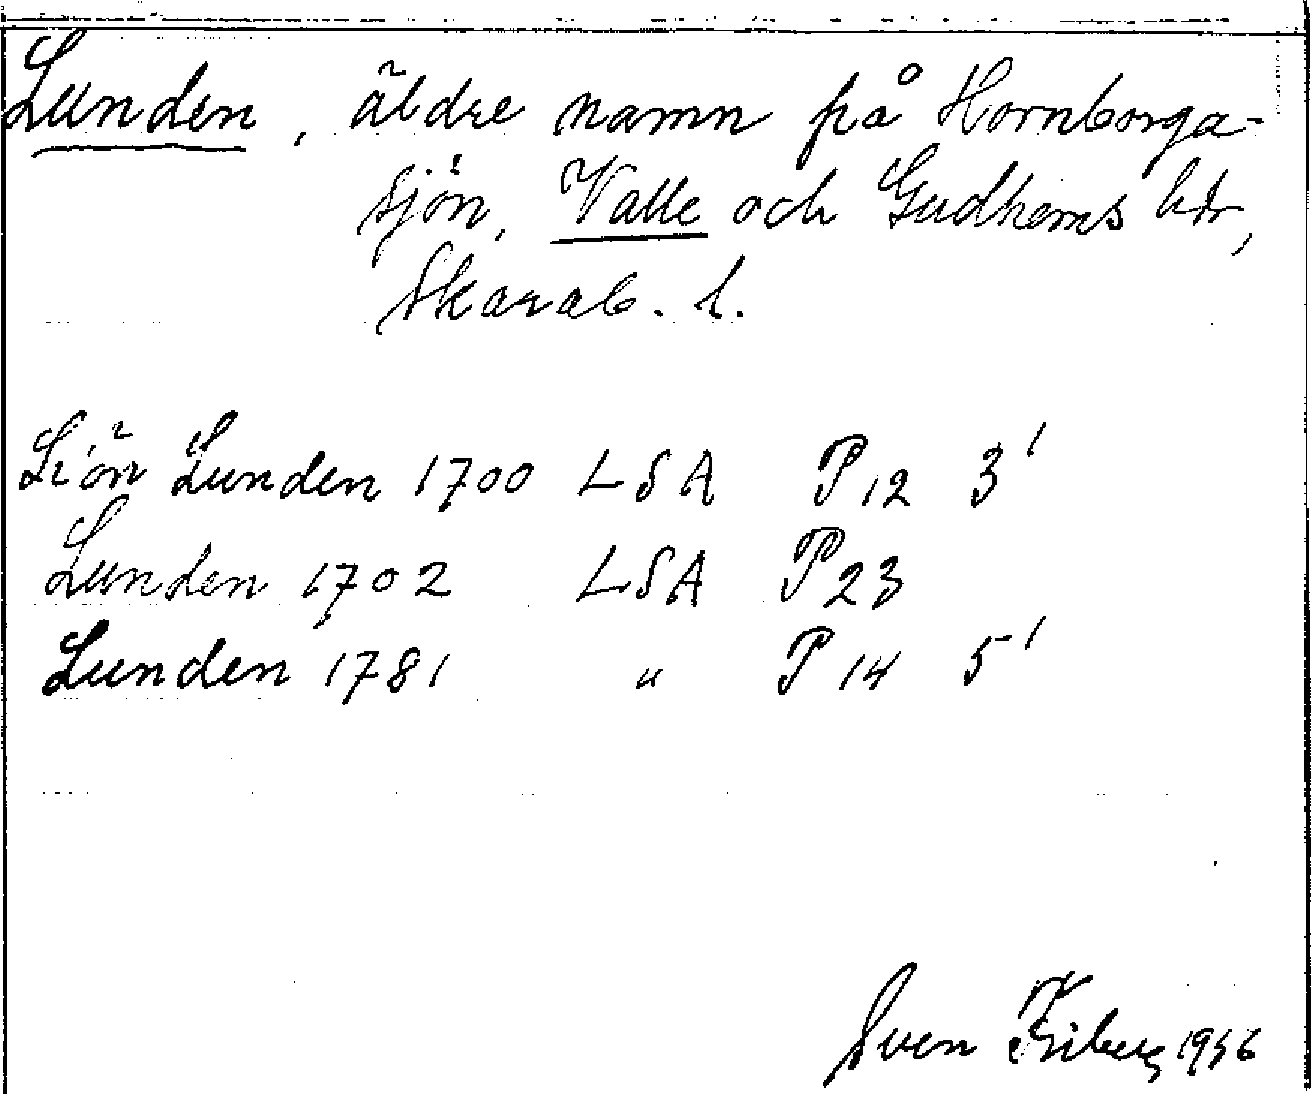 Lunden, äldre namn på Hornborga-
sjön, Valle och Gudhems hdr,
Skarab. l.
Siön Lunden 1700 LSA P12 3'
Lunden 1702 LSA P23
Lunden 1781 " P14 5'
Sven Friberg 1956